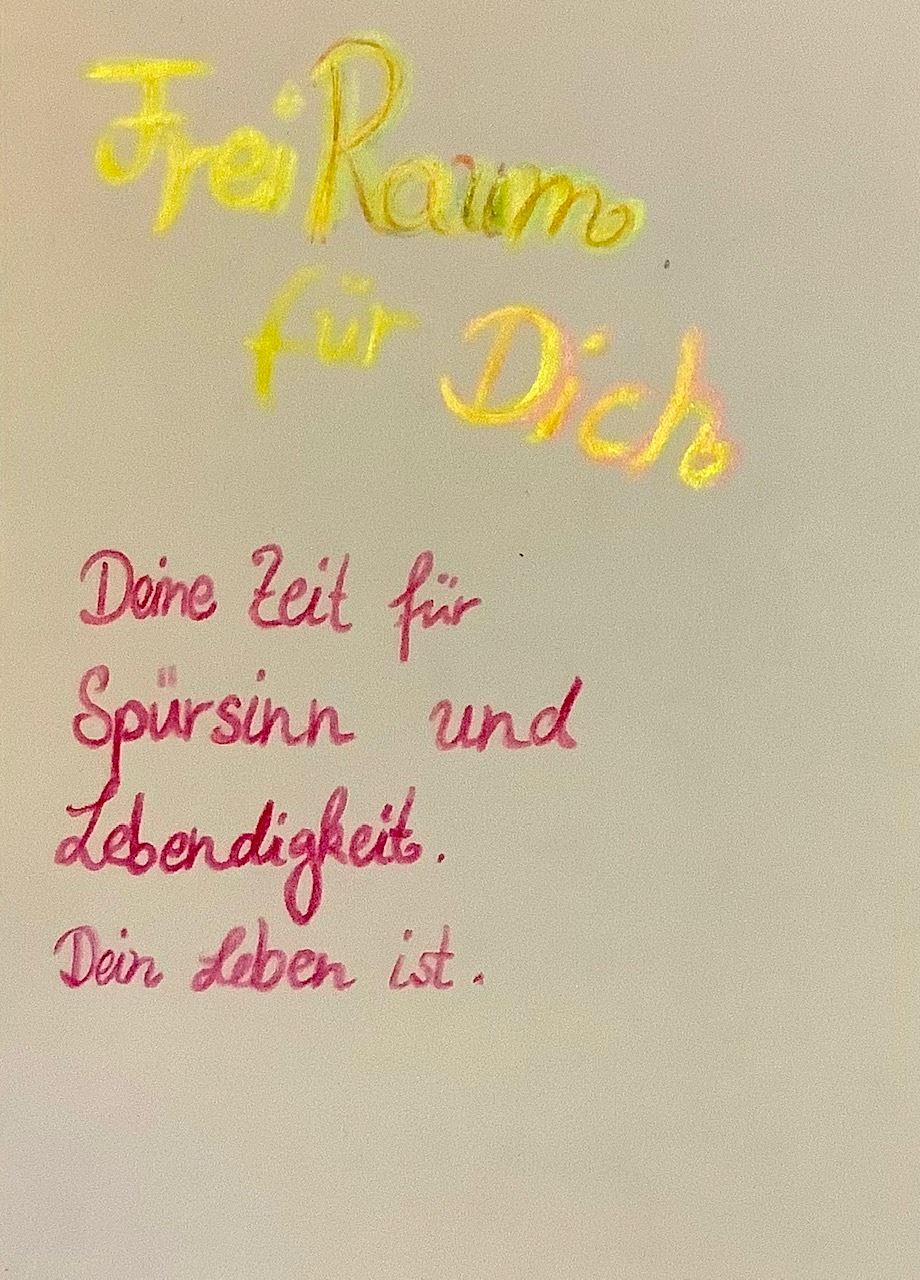 FreiRaum
für Dich
Deine Zeit für
Spürsinn und
Lebendigkeit.
Dein Leben ist.